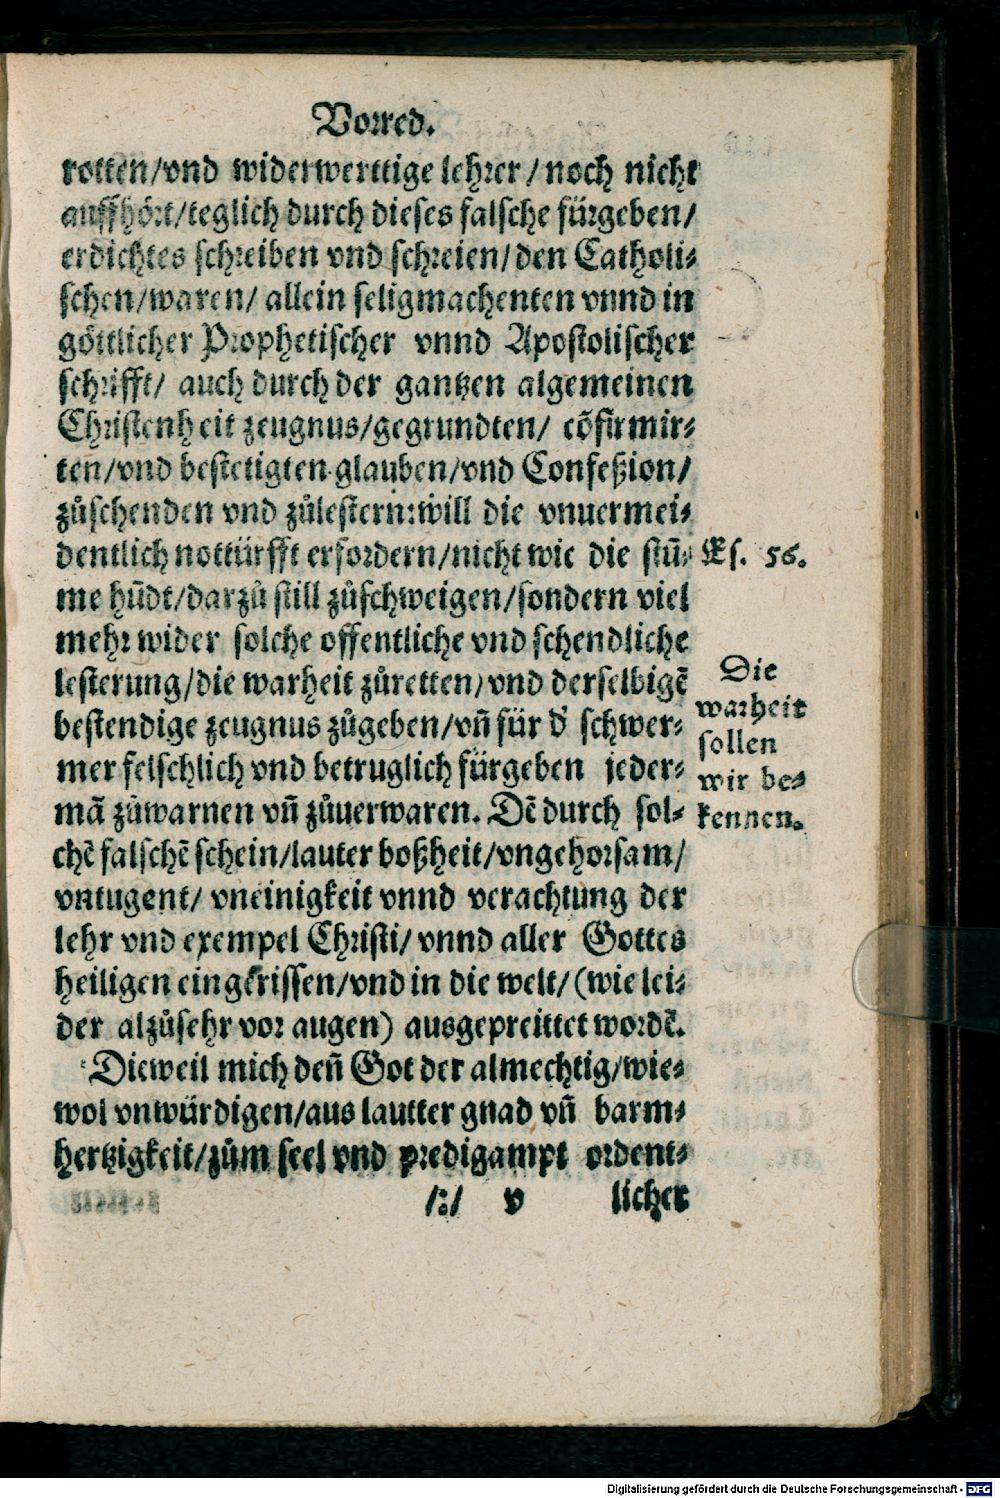 Vorred.
rotten/vnd widerwerttige lehrer/noch nicht
auffhört/teglich durch dieses falsche fürgeben/
erdichtes schreiben vnd schreien/den Catholi⸗
schen/waren/ allein seligmachenten vnnd in
göttlicher Prophetischer vnnd Apostolischer
schrifft/ auch durch der gantzen algemeinen
Christenheit zeugnus/gegrundten/ cōfirmir⸗
ten/vnd bestetigten glauben/vnd Confeßion/
zůschenden vnd zůlestern:will die vnuermei⸗
dentlich nottürfft erfordern/nicht wie die stū⸗
Es. 56.
me hūdt/darzů still zůschweigen/sondern viel
mehr wider solche offentliche vnd schendliche
lesterung/die warheit zůretten/vnd derselbigē
bestendige zeugnus zůgeben/vn̄ für d' schwer⸗
mer felschlich vnd betruglich fürgeben jeder⸗
mā zůwarnen vn̄ zůuerwaren. Dē durch sol⸗
Die
warheit
sollen
wir be⸗
kennen.
chē falschē schein/lauter boßheit/vngehorsam/
vntugent/ vneinigkeit vnnd verachtung der
lehr vnd exempel Christi/ vnnd aller Gottes
heiligen eingkrissen/vnd in die welt/(wie lei⸗
der alzůsehr vor augen) ausgepreittet wordē.
Dieweil mich den̄ Got der almechtig/wie⸗
wol vnwürdigen/aus lautter gnad vn̄ barm⸗
hertzigkeit/zům seel vnd predigampt ordent⸗
/:/ v licher
Digitalisierung gefördert durch die Deutsche Forschungsgemeinschaft - DFG